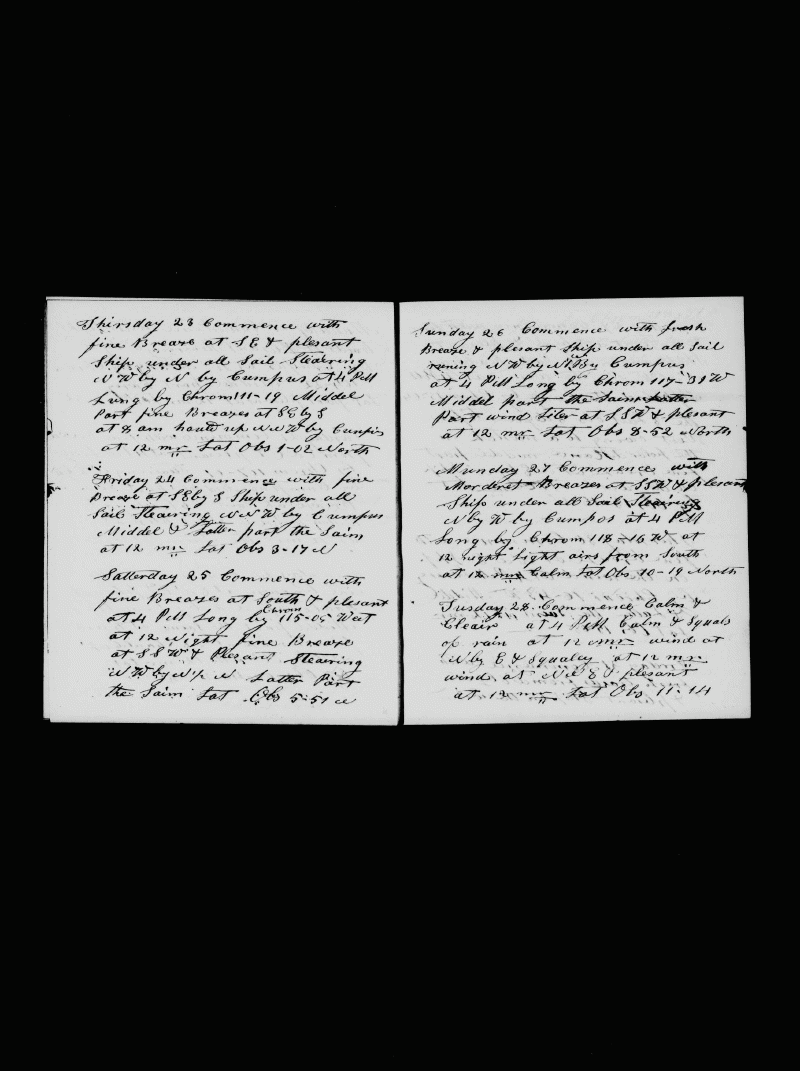 Thirsday 23 Commence with
fine Breaze at SE & plesant
Ship under all Sail Stearing
N W by N by Cumpus at 4 PM
Lung by Chrom 111-19 Middel
Part fine Breazes at SE by S
at 8 am hauld up N N W by Cumpus
at 12 mr Lat Obs 1-02 North
Friday 24 Commence with fine
Breaze at SE by S Ship under all
Sail Stearing N N W by Cumpus
Middel & Latter part the Saim
at 12 mr Lat Obs 3-17 N
Satterday 25 Commence with
fine Breazes at South & plesant
at 4 PM Long by Chrom 115-05 West
at 12 Night fine Breaze
at S S W & Plesant Stearing
N W by N ½ N Latter Part
the Saim Lat Obs 5-51 N
Sunday 26 Commence with fresh
Breaze & plesant Ship under all Sail
runing N W by N by Cumpus
at 4 PM Long by Chrom 117-31 W
Middel part the Saim Latter
Part wind Liter at S S W & plesant
at 12 mr Lat Obs 8-52 North
Munday 27 Commence with
Morderet Breazes at S S W & plesant
Ship under all Sail Stearing
N by W by Cumpos at 4 PM
Long by Chrom 118-16 W at
12 night Light airs from South
at 12 mr Calm Lat Obs 10-19 North
Tusday 28 Commence Calm &
Clear at 4 PM Calm & Squals
of rain at 12 mr wind at
N by E & Squaley at 12 mr
wind at N N E & plesant
at 12 mr Lat Obs 11-14